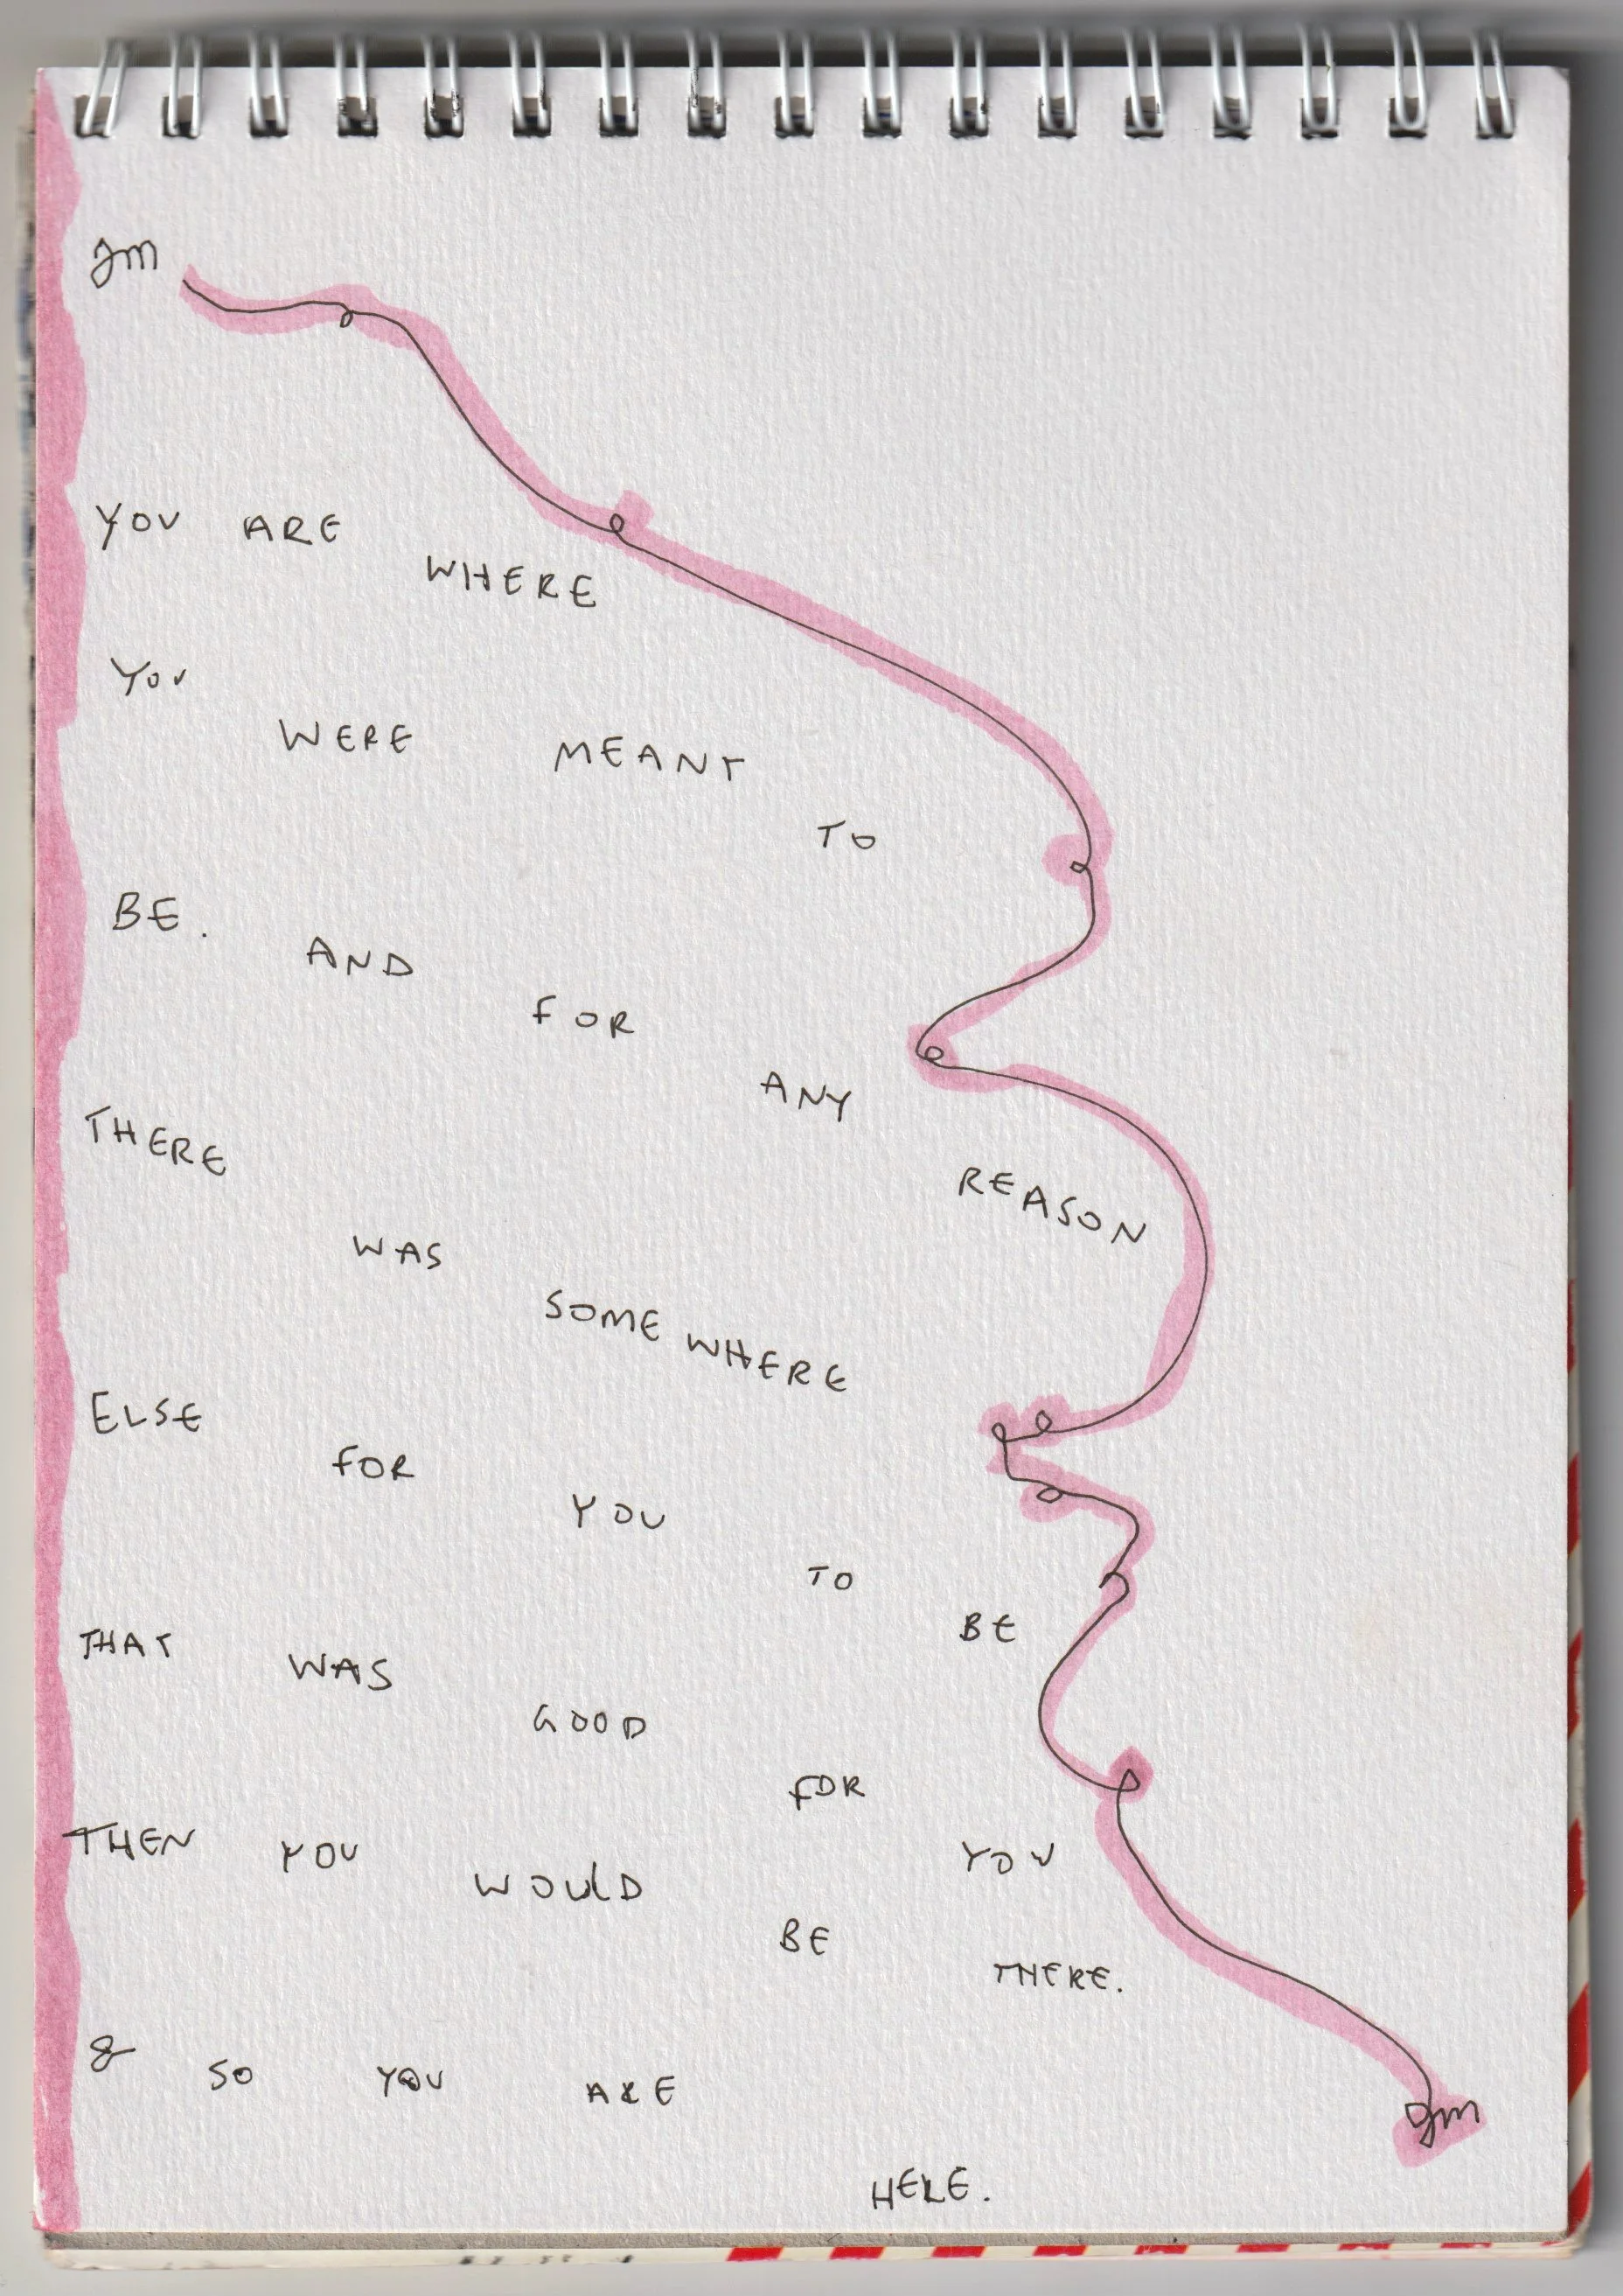 gm
YOU ARE WHERE
YOU WERE MEANT TO
BE. AND FOR ANY REASON
THERE WAS SOMEWHERE
ELSE FOR YOU TO BE
THAT WAS GOOD FOR YOU
THEN YOU WOULD BE THERE.
& SO YOU ARE HERE.
gm